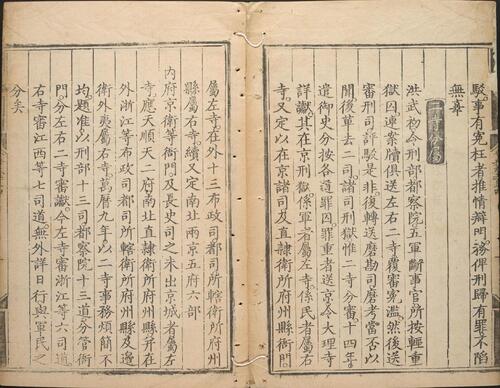 駁事有冤枉者推情辯問務俾刑歸有罪不陷
無辜
二寺分屬
洪武初令刑部都察院五軍斷事官所按輕重
獄囚連案牘俱送左右二寺覆審冤濫然後送
審刑司詳駁是非後轉送磨勘司磨考當否以
聞後革去二司諸司刑獄惟二寺分審十四年
遣御史分按各道罪囚罪重者送京令大理寺
詳讞其在京刑獄係軍者屬左寺係民者屬右
寺又定以在京諸司及直隸衛所府州縣衙門
屬左寺在外十三布政司都司所轄衛所府州
縣屬右寺續又定南北兩京五府六部
內府京衛等衙門及長史司之未出京城者屬左
寺應天順天二府南北直隸衛所府州縣并在
外浙江等布政司都司所轄衛所府州縣及邊
衛外夷屬右寺萬曆九年以二寺事務煩簡不
均題准以刑部十三司都察院十三道分管衙
門分左右二寺審讞今左寺審浙江等六司道
右寺審江西等七司道無外詳日行與軍民之
分矣